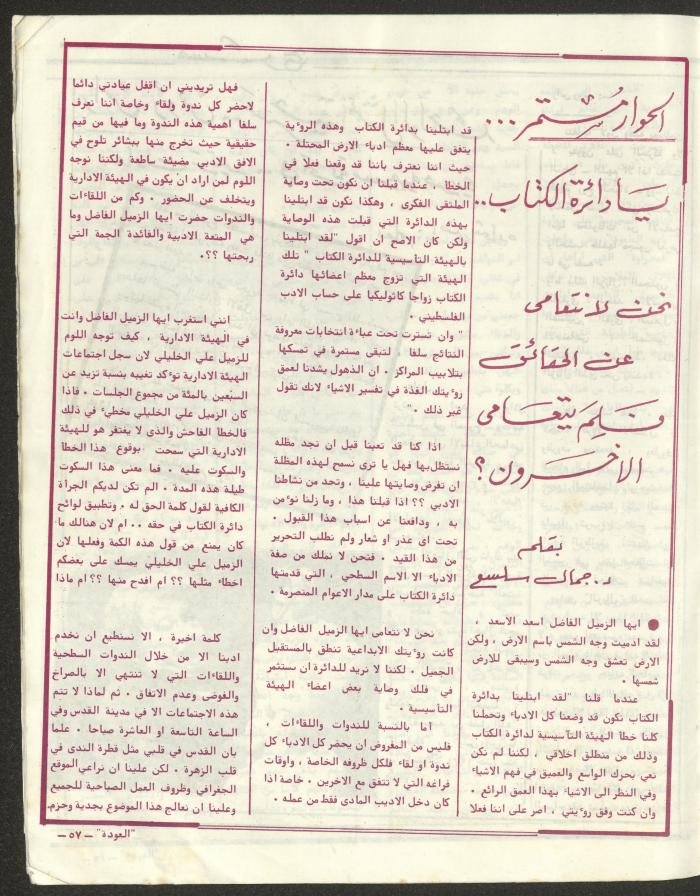 الحوار مستمر ...
يا دائرة الكتاب ..
نحن لا نتعامى
عن الحقائق
فلم يتعامى
الاخرون ؟
بقلم
د. جمال سلسع
● ايها الزميل الفاضل اسعد الاسعد ،
لقد ادميت وجه الشمس باسم الارض ، ولكن
الارض تعشق وجه الشمس وسيبقى للارض
شمسها .
عندما قلنا "لقد ابتلينا بدائرة
الكتاب نكون قد وضعنا كل الادباء وتحملنا
كلنا خطأ الهيئة التأسيسية لدائرة الكتاب
وذلك من منطلق اخلاقي ، لكننا لم نكن
نعي بحرك الواسع والعميق في فهم الاشياء
وفي النظر الى الاشياء بهذا العمق الرائع .
وان كنت وفق روءيتي ، اصر على اننا فعلا
قد ابتلينا بدائرة الكتاب وهذه الروءية
يتفق عليها معظم ادباء الارض المحتلة .
حيث اننا نعترف باننا قد وقعنا فعلا في
الخطأ ، عندما قبلنا ان نكون تحت وصاية
الملتقى الفكرى ، وهكذا نكون قد ابتلينا
بهذه الدائرة التي قبلت هذه الوصاية
ولكن كان الاصح ان اقول "لقد ابتلينا
بالهيئة التأسيسية للدائرة الكتاب " تلك
الهيئة التي تزوج معظم اعضائها دائرة
الكتاب زواجا كاثوليكيا على حساب الادب
الفلسطيني .
" وان تسترت تحت عباءة انتخابات معروفة
النتائج سلفا . لتبقى مستمرة في تمسكها
بتلابيب المراكز . ان الذهول يشدنا لعمق
روءيتك الفذة في تفسير الاشياء لانك تقول
غير ذلك . "
اذا كنا قد تعبنا قبل ان نجد مظله
نستظل بها فهل يا ترى نسمح لهذه المظلة
ان تفرض وصايتها علينا ، وتحد من نشاطنا
الادبي ؟؟ اذا قبلنا هذا ، وما زلنا نوءمن
به ، ودافعنا عن اسباب هذا القبول .
تحت اى عذر او شعار ولم نطلب التحرير
من هذا القيد . فنحن لا نملك من صفة
الادباء الا الاسم السطحي ، التي قدمتها
دائرة الكتاب على مدار الاعوام المنصرمة .
نحن لا نتعامى ايها الزميل الفاضل وان
كانت روءيتك الابداعية تنطق بالمستقبل
الجميل . لكننا لا نريد للدائرة ان يستثمر
في فلك وصاية بعض اعضاء الهيئة
التأسيسية .
أما بالنسبة للندوات واللقاءات ،
فليس من المفروض ان يحضر كل الادباء كل
ندوة او لقاء فلكل ظروفه الخاصة ، واوقات
فراغه التي لا تتفق مع الاخرين . خاصة اذا
كان دخل الاديب المادى فقط من عمله .
فهل تريديني ان اقفل عيادتي دائما
لاحضر كل ندوة ولقاء وخاصة اننا نعرف
سلفا اهمية هذه الندوة وما فيها من قيم
حقيقية حيث تخرج منها ببشائر تلوح في
الافق الادبي مضيئة ساطعة ولكننا نوجه
اللوم لمن اراد ان يكون في الهيئة الادارية
ويتخلف عن الحضور . وكم من اللقاءات
والندوات حضرت ايها الزميل الفاضل وما
هي المتعة الادبية والفائدة الجمة التي
ربحتها ؟؟ .
انني استغرب ايها الزميل الفاضل وانت
في الهيئة الادارية ، كيف توجه اللوم
للزميل علي الخليلي لان سجل اجتماعات
الهيئة الادارية توءكد تغيبه بنسبة تزيد عن
السبعين بالمئة من مجموع الجلسات . فاذا
كان الزميل علي الخليلي مخطيء في ذلك
فالخطأ الفاحش والذي لا يغتفر هو للهيئة
الادارية التي سمحت بوقوع هذا الخطأ
والسكوت عليه . فما معنى هذا السكوت
طيلة هذه المدة . الم تكن لديكم الجرأة
الكافية لقول كلمة الحق له . وتطبيق لوائح
دائرة الكتاب في حقه .. ام لان هنالك ما
كان يمنع من قول هذه الكمة وفعلها لان
الزميل علي الخليلي يمسك على بعضكم
اخطاء مثلها ؟؟ ام افدح منها ؟؟ ام ماذا
كلمة اخيرة ، الا نستطيع ان نخدم
ادبنا الا من خلال الندوات السطحية
واللقاءات التي لا تنتهي الا بالصراخ
والفوضى وعدم الاتفاق . ثم لماذا لا تتم
هذه الاجتماعات الا في مدينة القدس وفي
الساعة التاسعة او العاشرة صباحا . علما
بان القدس في قلبي مثل قطرة الندى في
قلب الزهرة . لكن علينا ان نراعي الموقع
الجغرافي وظروف العمل الصباحية للجميع
وعلينا ان نعالج هذا الموضوع بجدية وحزم.
"العودة" — ٥٧ —